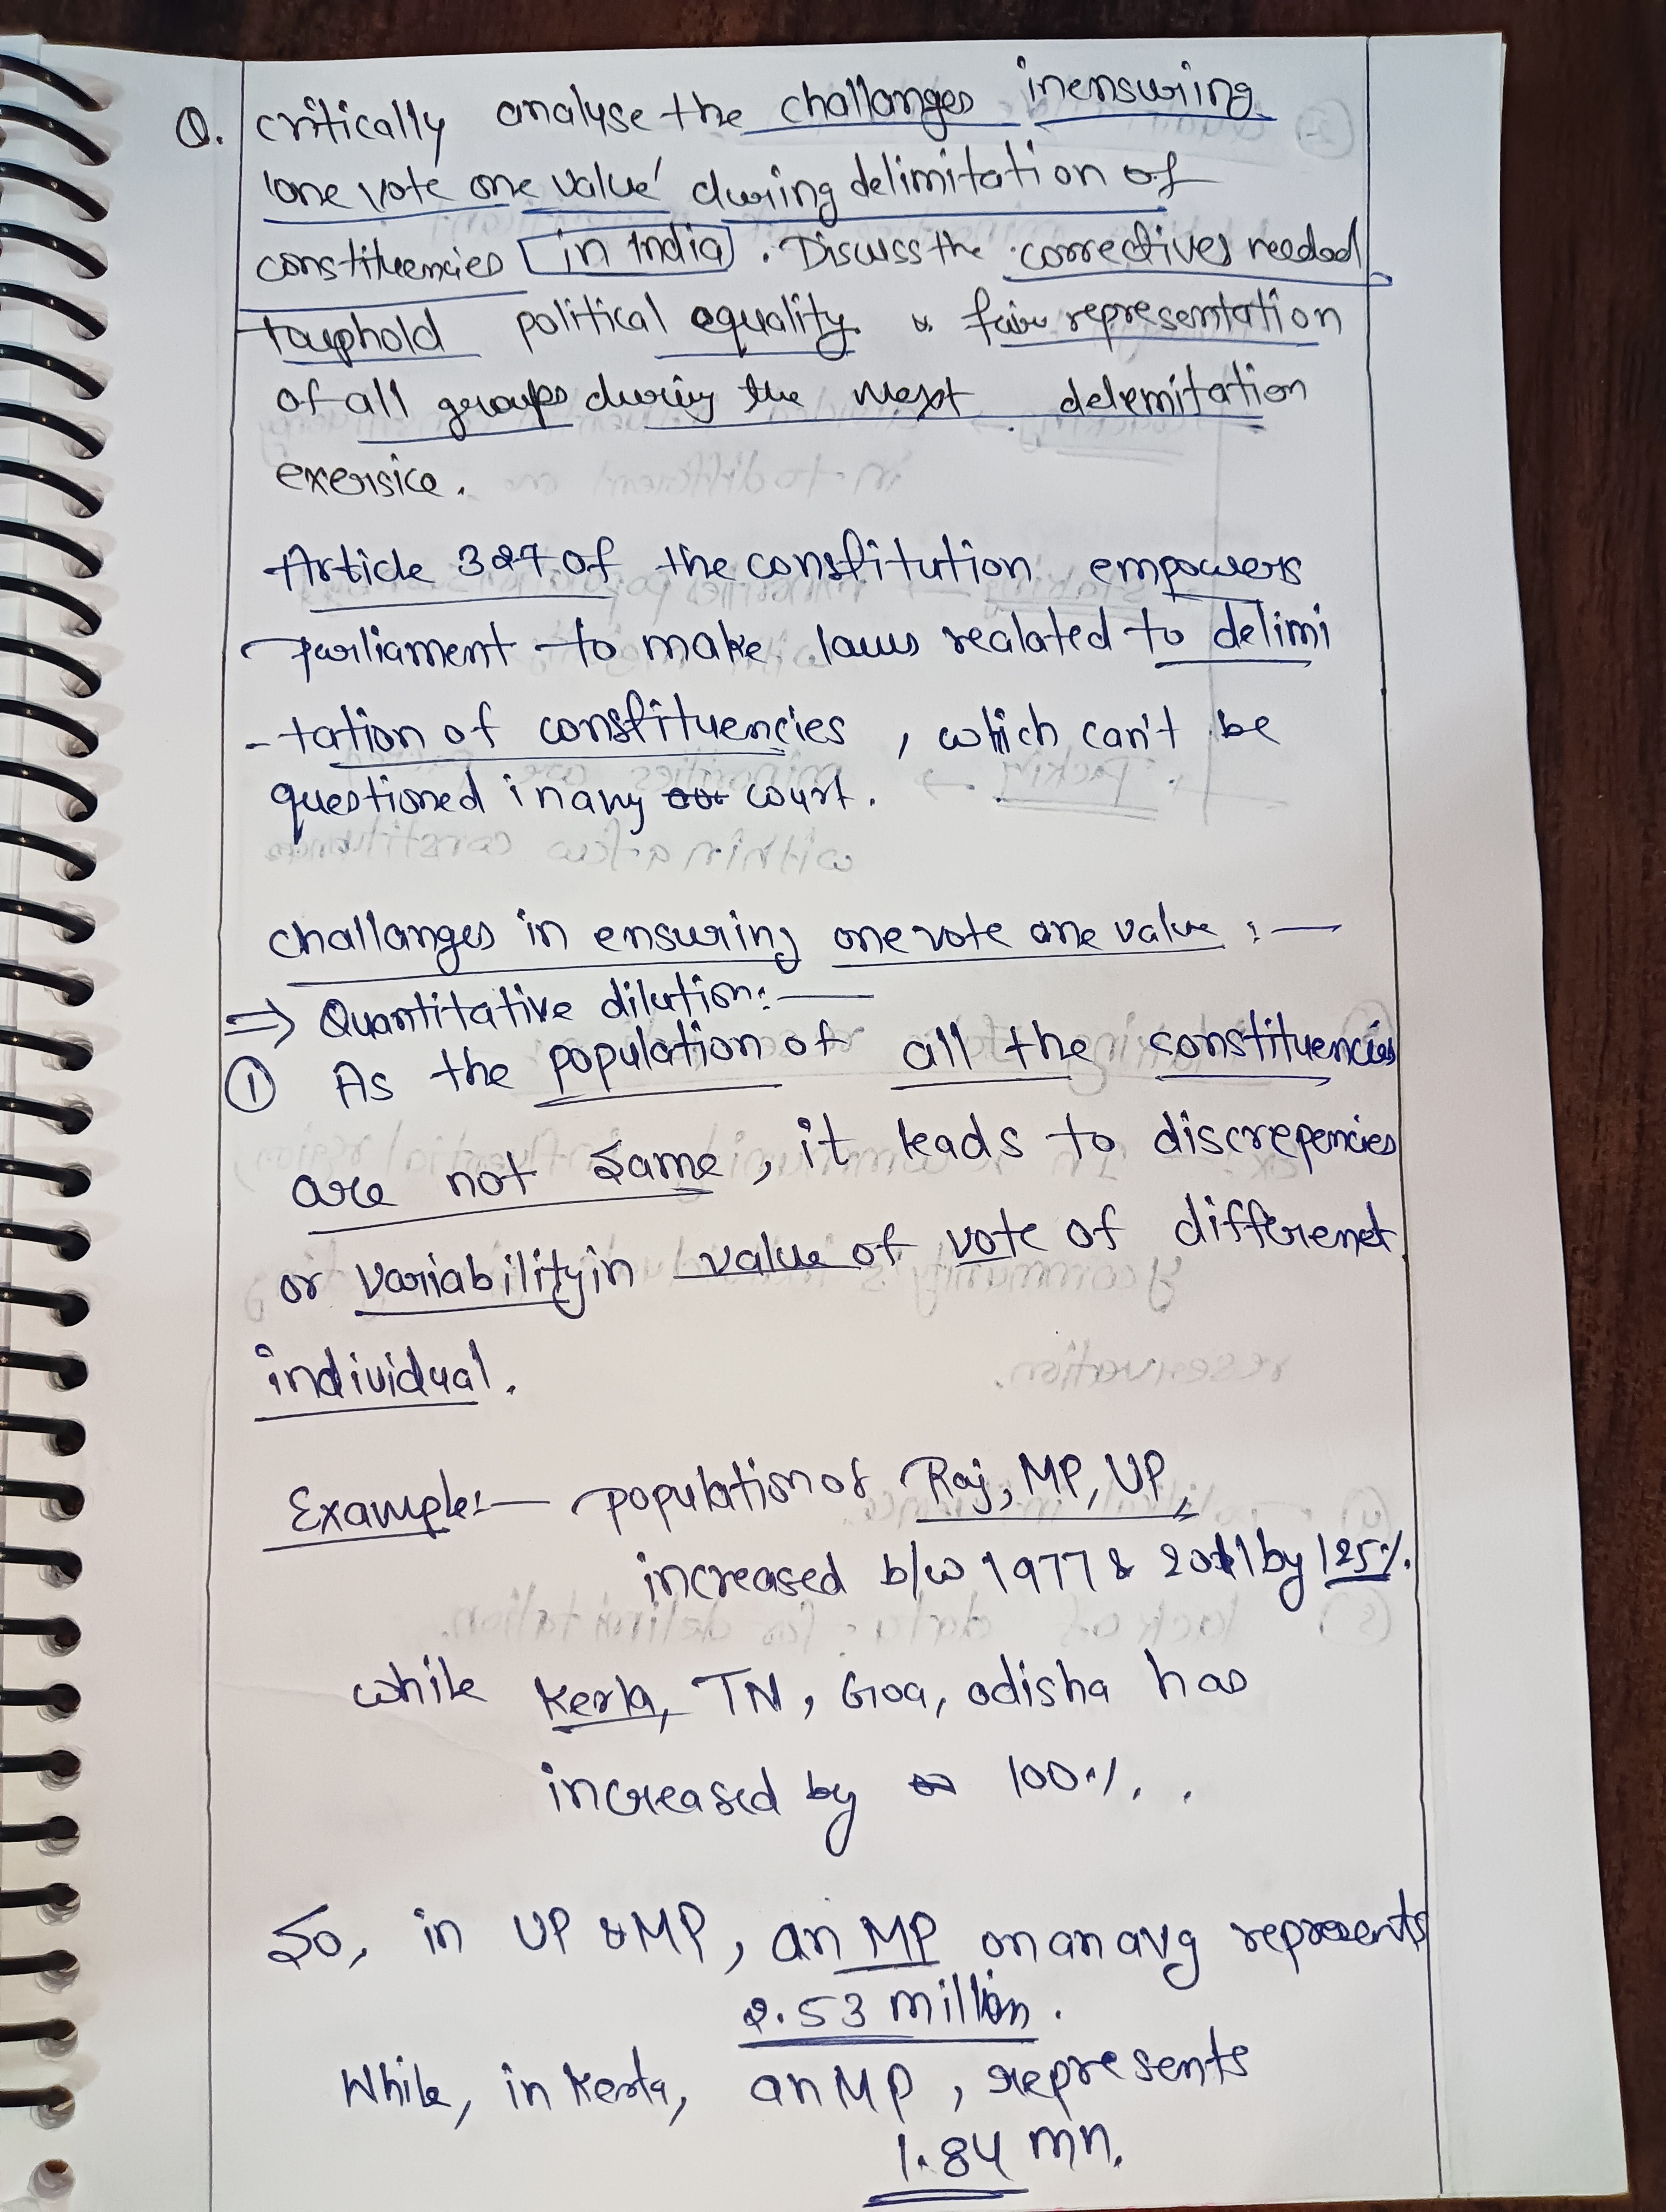 Q. critically analyse the challanges in ensuring
'one vote one value' during delimitation of
constituencies in India . Discuss the correctives needed
to uphold political equality & fair representation
of all groups during the next delemitation
exersice.
Article 327 of the constitution empowers
parliament to make laws realated to delimi
-tation of constituencies , which can't be
questioned in any court.
challanges in ensuring one vote one value :—
⇒ Quantitative dilution:—
① As the population of all the constituencies
are not same, it leads to discrepencies
or variability in value of vote of differenet
individual.
Example:— population of Raj, MP, UP,
increased b/w 1977 & 2011 by 125%.
while Kerla, TN, Goa, odisha has
increased by 100%.
So, in UP & MP, an MP on an avg represents
2.53 million.
While, in Kerla, an MP, represents
1.84 mn.